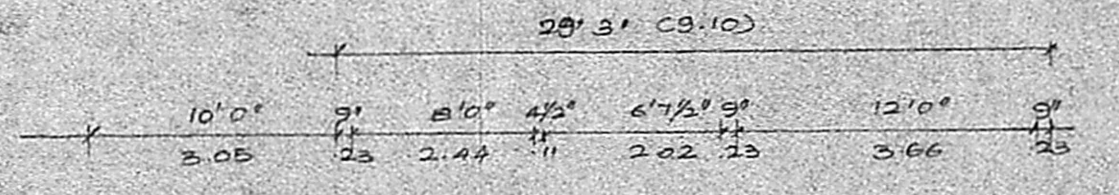 29' 3" (9.10)
10'0" 9" 8'0" 4½" 6'7½" 9" 12'0" 9"
3.05 .23 2.44 .11 2.02 .23 3.66 .23